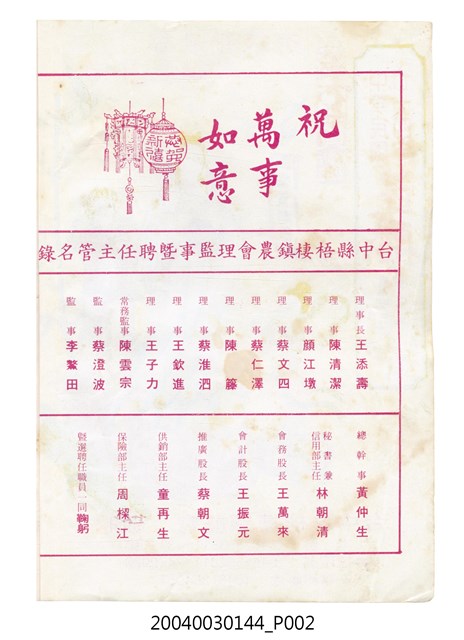 祝
萬事
如意
恭賀
新禧
台中縣梧棲鎮農會理監事暨聘任主管名錄
理事長 王添壽
理事 陳清潔
理事 顏江墩
理事 蔡文四
理事 蔡仁澤
理事 陳籐
理事 蔡淮泗
理事 王欽進
理事 王子力
常務監事 陳雲宗
監事 蔡澄波
監事 李鰲田
總幹事 黃仲生
秘書兼信用部主任 林朝清
會務股長 王萬來
會計股長 王振元
推廣股長 蔡朝文
供銷部主任 童再生
保險部主任 周樑江
暨選聘任職員一同 鞠躬
20040030144_P002